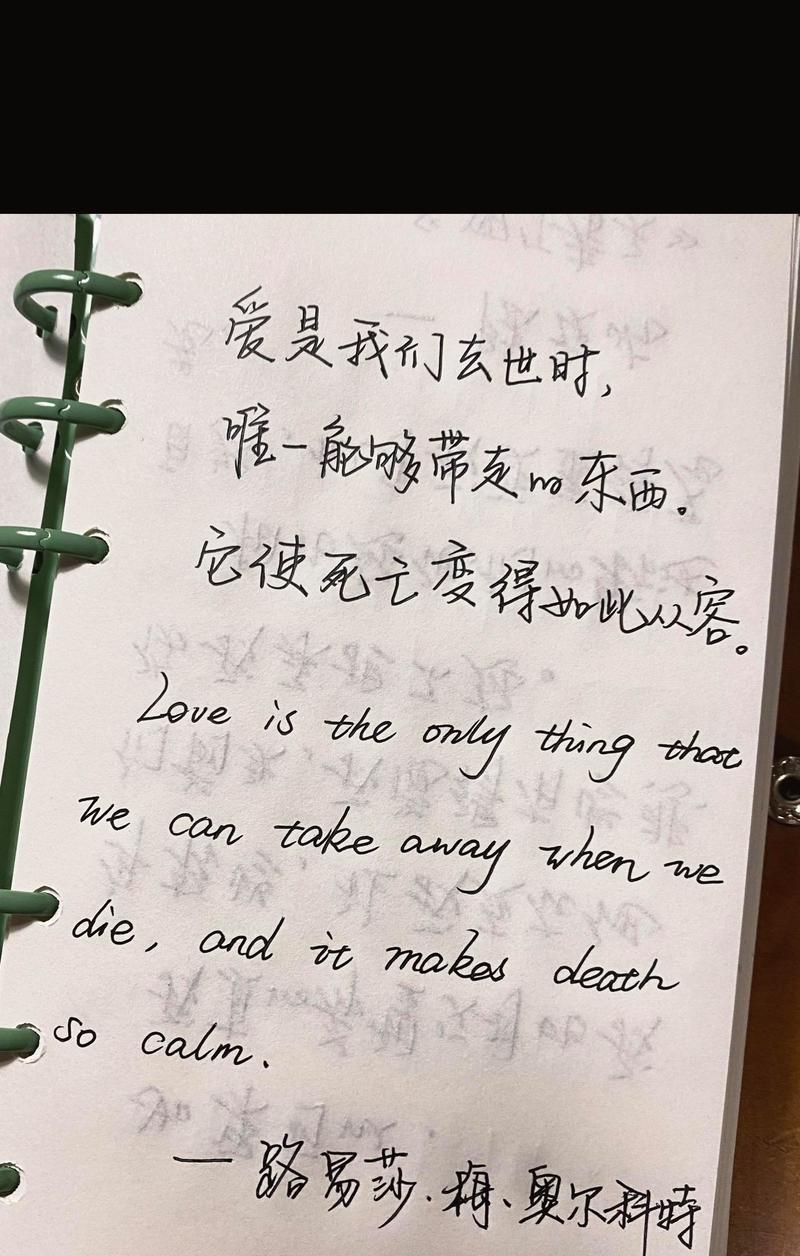 爱是我们去世时,
唯一能够带走的东西。
它使死亡变得如此从容。
Love is the only thing that
we can take away when we
die, and it makes death
so calm.
— 路易莎·梅·奥尔科特